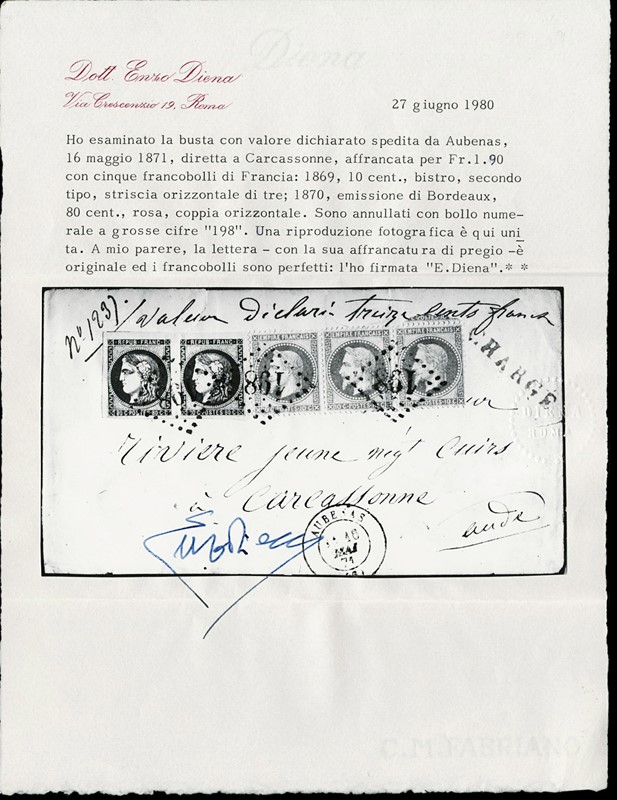 Diena
Dott. Enzo Diena
Via Crescenzio 19, Roma
27 giugno 1980
Ho esaminato la busta con valore dichiarato spedita da Aubenas,
16 maggio 1871, diretta a Carcassonne, affrancata per Fr.1.90
con cinque francobolli di Francia: 1869, 10 cent., bistro, secondo
tipo, striscia orizzontale di tre; 1870, emissione di Bordeaux,
80 cent., rosa, coppia orizzontale. Sono annullati con bollo nume-
rale a grosse cifre "198". Una riproduzione fotografica è qui uni
ta. A mio parere, la lettera - con la sua affrancatura di pregio -è
originale ed i francobolli sono perfetti: l'ho firmata "E.Diena".* *
Nº 1237
Valeur Déclarée treize cents francs
REPUB FRANC REPUB FRANC EMPIRE FRANCAIS EMPIRE FRANCAIS EMPIRE FRANCAIS
198 198
80 C POSTES 80 C 80 C POSTES 80 C 10 C POSTES 10 C 10 C POSTES 10 C 10 C POSTES 10 C
CHARGÉ
DIENA
ROMA
Rivière jeune négt cuirs
à Carcassonne
aude
AUBENAS
16
MAI
71
C.M.FABRIANO